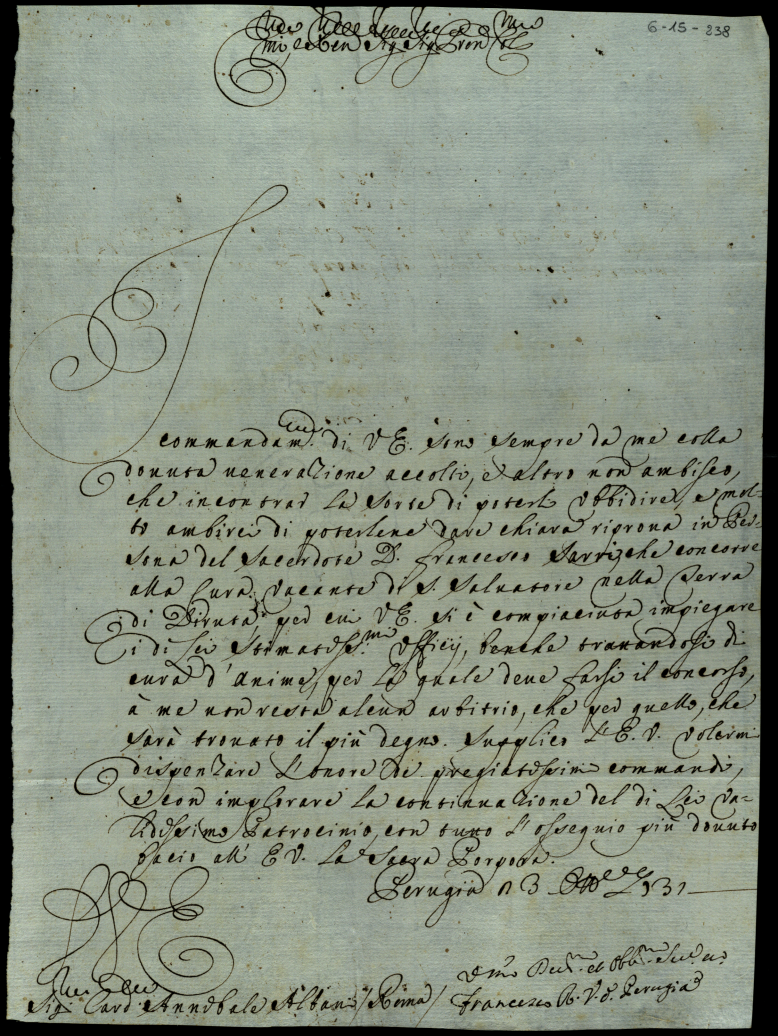 6-15-238
mi, e Ren Sig. Sig. Pron Col
I
commandam.ti di V E. sono sempre da me colla
dovuta venerazione accolti, e altro non ambisco,
che incontrar la sorte di poterli obbidire, e mol-
to ambirei di poterlene dare chiara riprova in Per-
sona del Sacerdote D. Francesco Sarri, che concorre
alla Cura vacante di S. Salvatore nella Terra
di Diruta, per cui V E. si è compiaciuta impiegare
i di Lei stimatiss.mi Officij, benche trattandosi di
cura d'anime, per la quale deve farsi il concorso,
à me non resta alcun arbitrio, che per quello, che
sarà trovato il più degno. Supplico l'E. V. volermi
dispenzare l'onore de pregiatissimi commandi,
e con implorare la continuazione del di Lei va-
lidissimo Patrocinio, con tutto l'ossequio più dovuto
bacio all' E V. la Sacra Porpora.
Perugia 3 1731
Sig. Card. Annibale Albani / Roma /
Francesco R. V. di Perugia